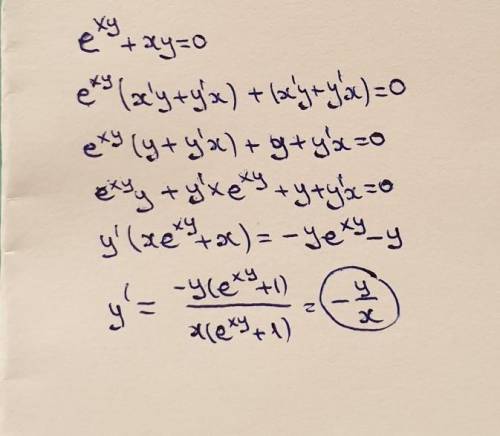 e^{xy} + xy = 0
e^{xy} (x'y + y'x) + (x'y + y'x) = 0
e^{xy} (y + y'x) + y + y'x = 0
e^{xy} y + y' x e^{xy} + y + y'x = 0
y' (x e^{xy} + x) = - y e^{xy} - y
y' = \frac{-y(e^{xy} + 1)}{x(e^{xy} + 1)} = - \frac{y}{x}